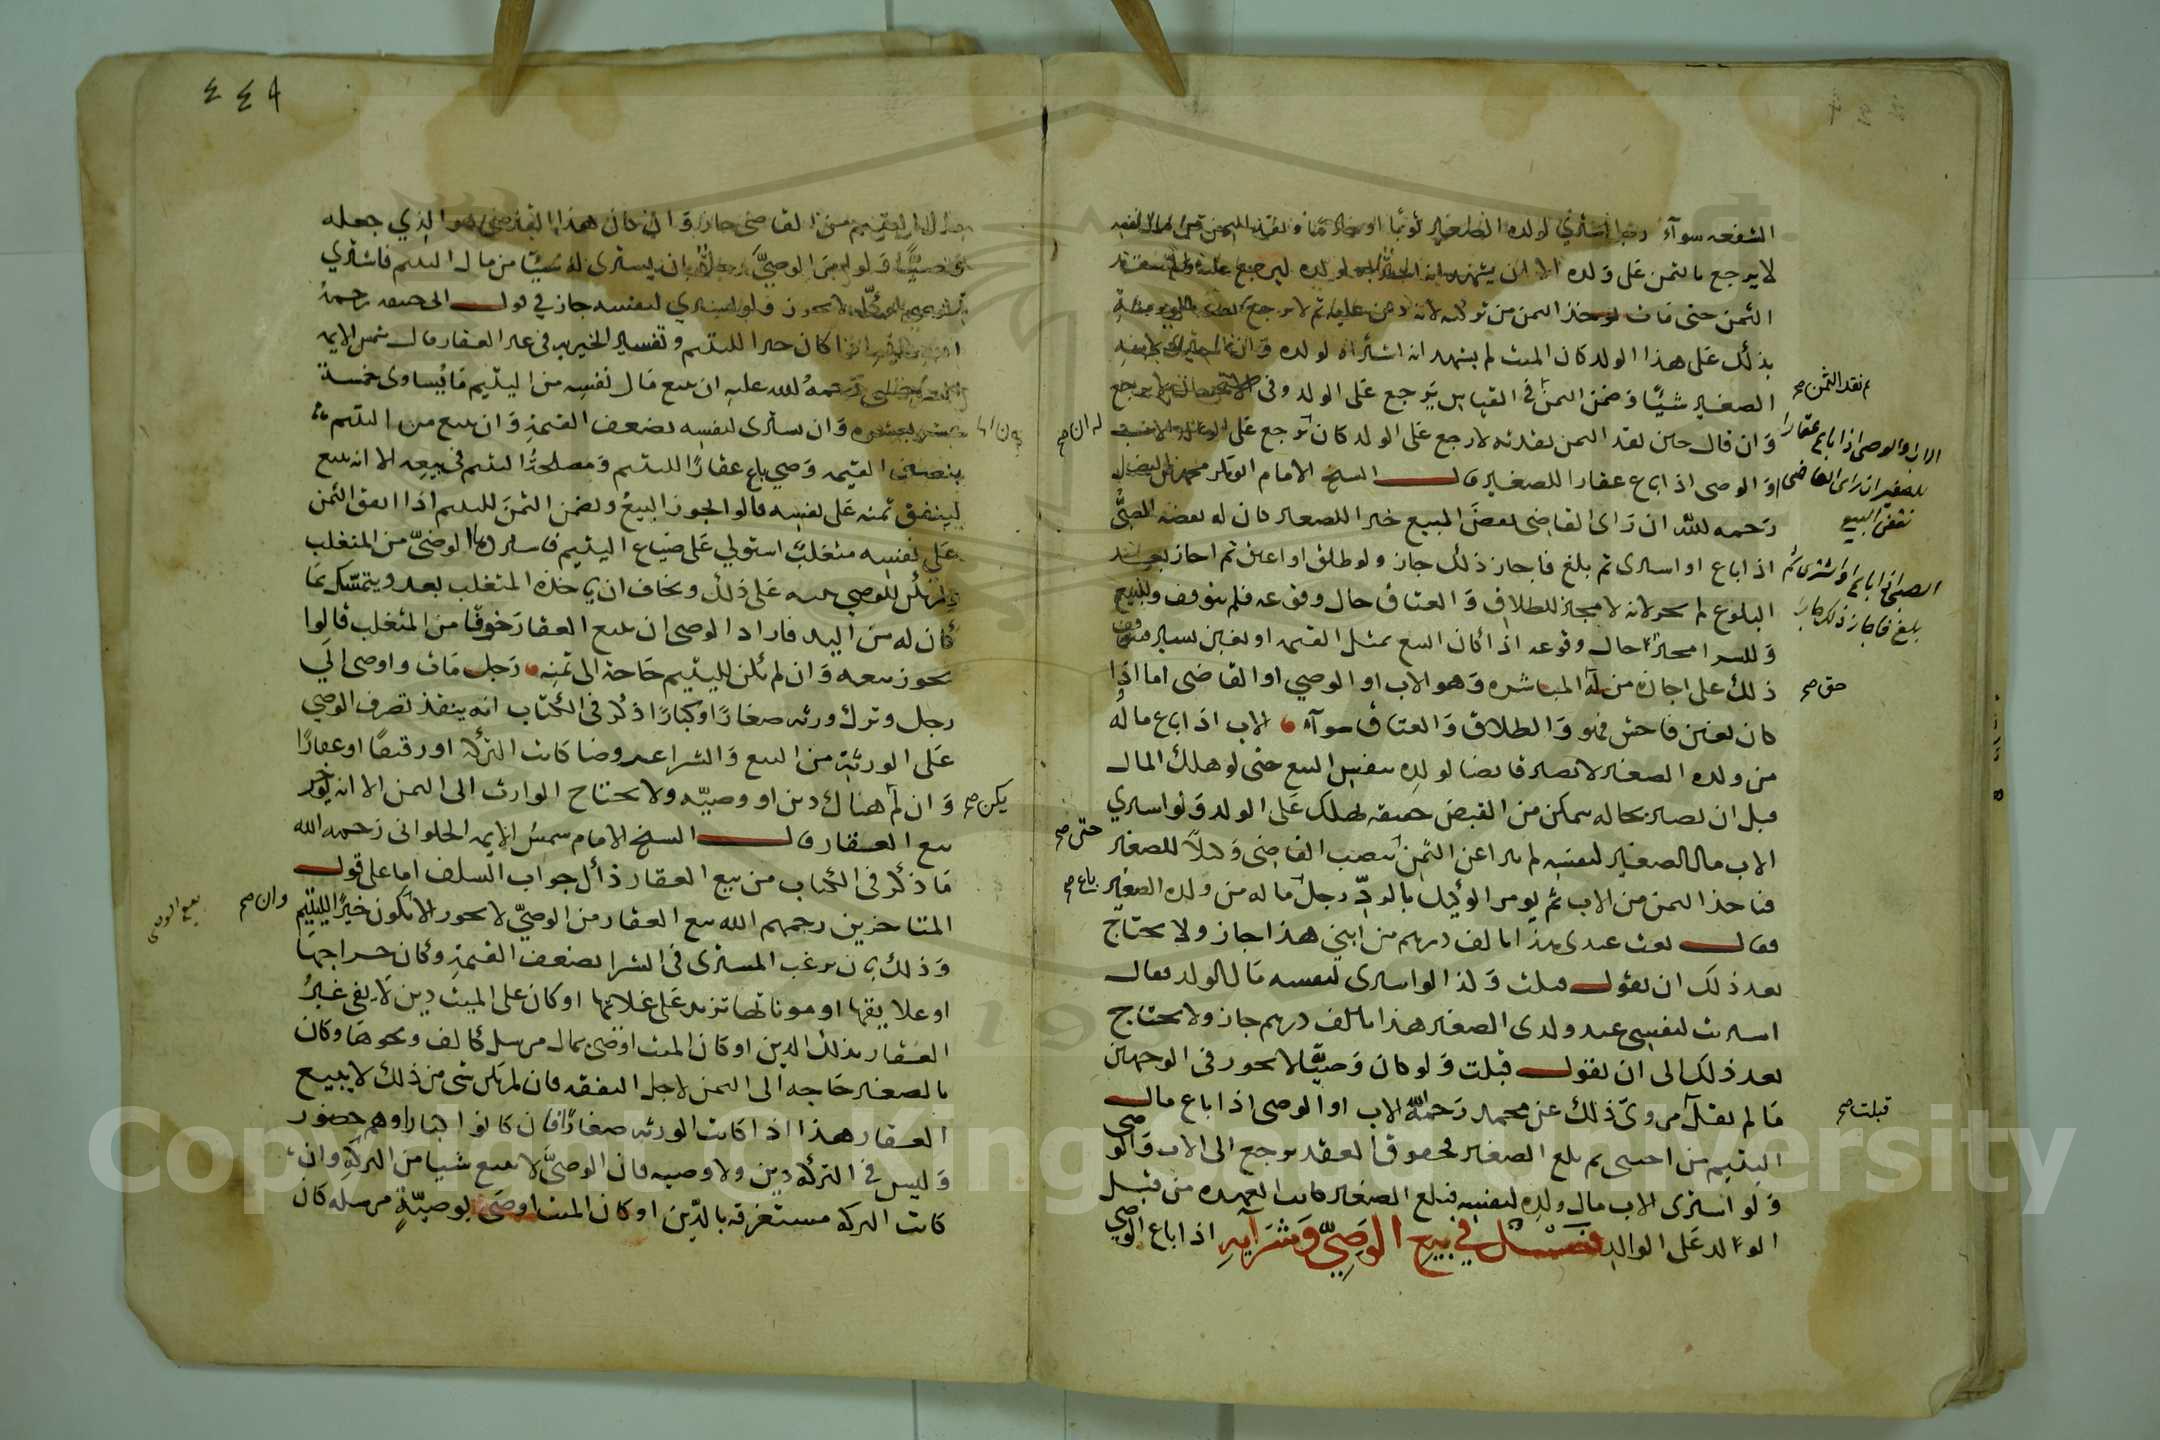 الشفعه سوآء رجل اشتري لولده الصغير ثوبًا او خادمًا ونقد الثمن من مال نفسه
لا يرجع بالثمن على ولده الا ان يشهد انه اشتراه لولده ليرجع عليه وان لم ينقد
الثمن حتى مات يوخذ الثمن من تركته لانه دين عليه ثم لا يرجع بقية الورثة
بذلك على هذا الولد كان الميت لم يشهد انه اشتراه لولده وان اشترى لابنه
الصغير شيئًا وضمن الثمن في القياس يرجع على الولد وفى الاستحسان لا يرجع
وان قال حين نقد الثمن نقدته لارجع على الولد كان يرجع على الولد
او الوصى اذا باع عقارا للصغير قال الشيخ الامام ابو بكر محمد بن الفضل
رحمه لله ان راى القاضى نقض المبيع خيرا للصغير كان له نقضه الصبي
اذا باع او اسرى ثم بلغ فاجاز ذلك جاز ولو طلق او اعتق ثم اجاز بعد
البلوغ لم يجز لانه لا مجيز للطلاق والعتاق حال وقوعه فلم يتوقف وللبيع
وللسرا مجيز حال وقوعه اذا كان البيع بمثل القيمه او بغبن يسير فتوقف
ذلك على اجازة من له المباشره وهو الاب او الوصي او القاضى اما اذا
كان بغبن فاحش فهو والطلاق والعتاق سوآء الاب اذا باع ماله
من ولده الصغير لا يصير قابضا لولده بنفس البيع حتى لو هلك المال
قبل ان يصير بحاله يتمكن من القبض حقيقه يهلك على الولد ولو اسرى
الاب مال الصغير لنفسه لم يبرا عن الثمن ينصب القاضى وكيلًا للصغير
فياخذ الثمن من الاب ثم يومر الوكيل بالرد رجل ماله من ولده الصغير
فقال بعت عبدى هذا بالف درهم من ابني هذا جاز ولا يحتاج
بعد ذلك ان يقول قبلت وكذا لو اسرى لنفسه مال الولد فقال
اسريت لنفسى عبد ولدى الصغير هذا بالف درهم جاز ولا يحتاج
بعد ذلك الى ان يقول قبلت ولو كان وصيًا لا يجوز فى الوجهين
ما لم يقل مروى ذلك عن محمد رحمه الله الاب او الوصى اذا باع مال
اليتيم من اجنبى ثم بلغ الصغير فحقوق العقد يرجع الى الاب والوصى
ولو اسرى الاب مال ولده لنفسه فبلغ الصغير كانت العهده من قبل
الولد على الوالد فصل في بيع الوصي وشرآيه اذا باع الوصي
ثم نقد الثمن صح
الاب والوصى اذا باع عقارا
للصغير ان راى القاضى
نقض البيع
الصبى اذا باع او اشترى ثم
بلغ فاجاز ذلك جاز
حق صح
قبلت صح
له ان صح
حتى صح
باع صح
٤٤٨
من القاضى جاز وان كان هذا القاضى هو الذي جعله
وصيًا ولو امر الوصيّ رجلًا بان يسترى له شيئًا من مال اليتيم فاشترى
لا يجوز ولو اشترى لنفسه جاز في قول ابى حنيفه رحمه
الله اذا كان خيرا لليتيم وتفسير الخيريه فى غير العقار قال شمس الايمه
السرخسى رحمه الله عليه ان يبيع مال نفسه من اليتيم ما يساوى خمسة
عشر بعشره وان يسترى لنفسه بضعف القيمة وان يبيع من اليتيم
بنصف القيمه وصي باع عقارًا لليتيم ومصلحة اليتيم فى بيعه الا انه يبيع
لينفق ثمنه على نفسه قالوا يجوز البيع ويضمن الثمن لليتيم اذا انفق الثمن
على نفسه متغلب استولي على ضياع اليتيم فاسترد الوصىّ من المتغلب
ولم يكن للوصي بينه على ذلك ويخاف ان ياخذه المتغلب بعد ويتمسك بما
كان له من اليد فاراد الوصى ان يبيع العقار خوفًا من المتغلب قالوا
يجوز بيعه وان لم يكن لليتيم حاجة الى ثمنه رجل مات واوصى الي
رجل وترك ورثه صغارًا او كبارًا ذكر فى الكتاب انه ينفذ تصرف الوصي
على الورثة من البيع والشرا عروضا كانت التركة او رقيقًا او عقارًا
وان لم هناك دين او وصيّه ولا يحتاج الوارث الى الثمن الا انه يجوز
بيع العقار قال الشيخ الامام شمس الايمه الحلوانى رحمه الله
ما ذكر فى الكتاب من بيع العقار ذاك جواب السلف اما على قول
المتاخرين رحمهم الله بيع العقار من الوصيّ لا يجوز الا يكون خيرًا لليتيم
وذلك بان يرغب المسترى فى الشرا بضعف القيمة وكان خراجها
او علايقها او موناتها تزيد على غلاتها او كان على الميت دين لا يفى غيرُ
العقار بذلك الدين او كان الميت اوصى بمال مرسل كالف ونحوها وكان
بالصغير حاجه الى الثمن لاجل النفقه فان لم يكن شى من ذلك لا يبيع
العقار هذا اذا كانت الورثه صغارًا فان كانوا كبارا وهم حضور
وليس في التركة دين ولا وصيه فان الوصيّ لا يبيع شيا من التركة وان
كانت التركه مستغرقه بالدّين او كان الميت اوصى بوصيّةٍ مرسله كان
يكن صح
وان صح
بيع الوصى